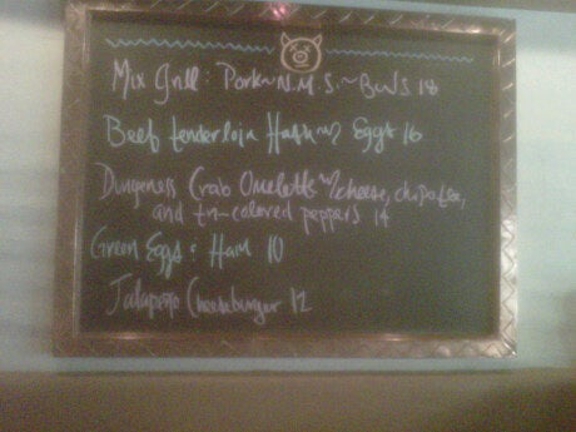 Mix Grill: Pork~N.Y.S.~BWS 18
Beef tenderloin Hash w/ Eggs 16
Dungeness Crab Omelette w/cheese, chipotle,
and tri-colored peppers 14
Green Eggs & Ham 10
Jalapeno Cheeseburger 12